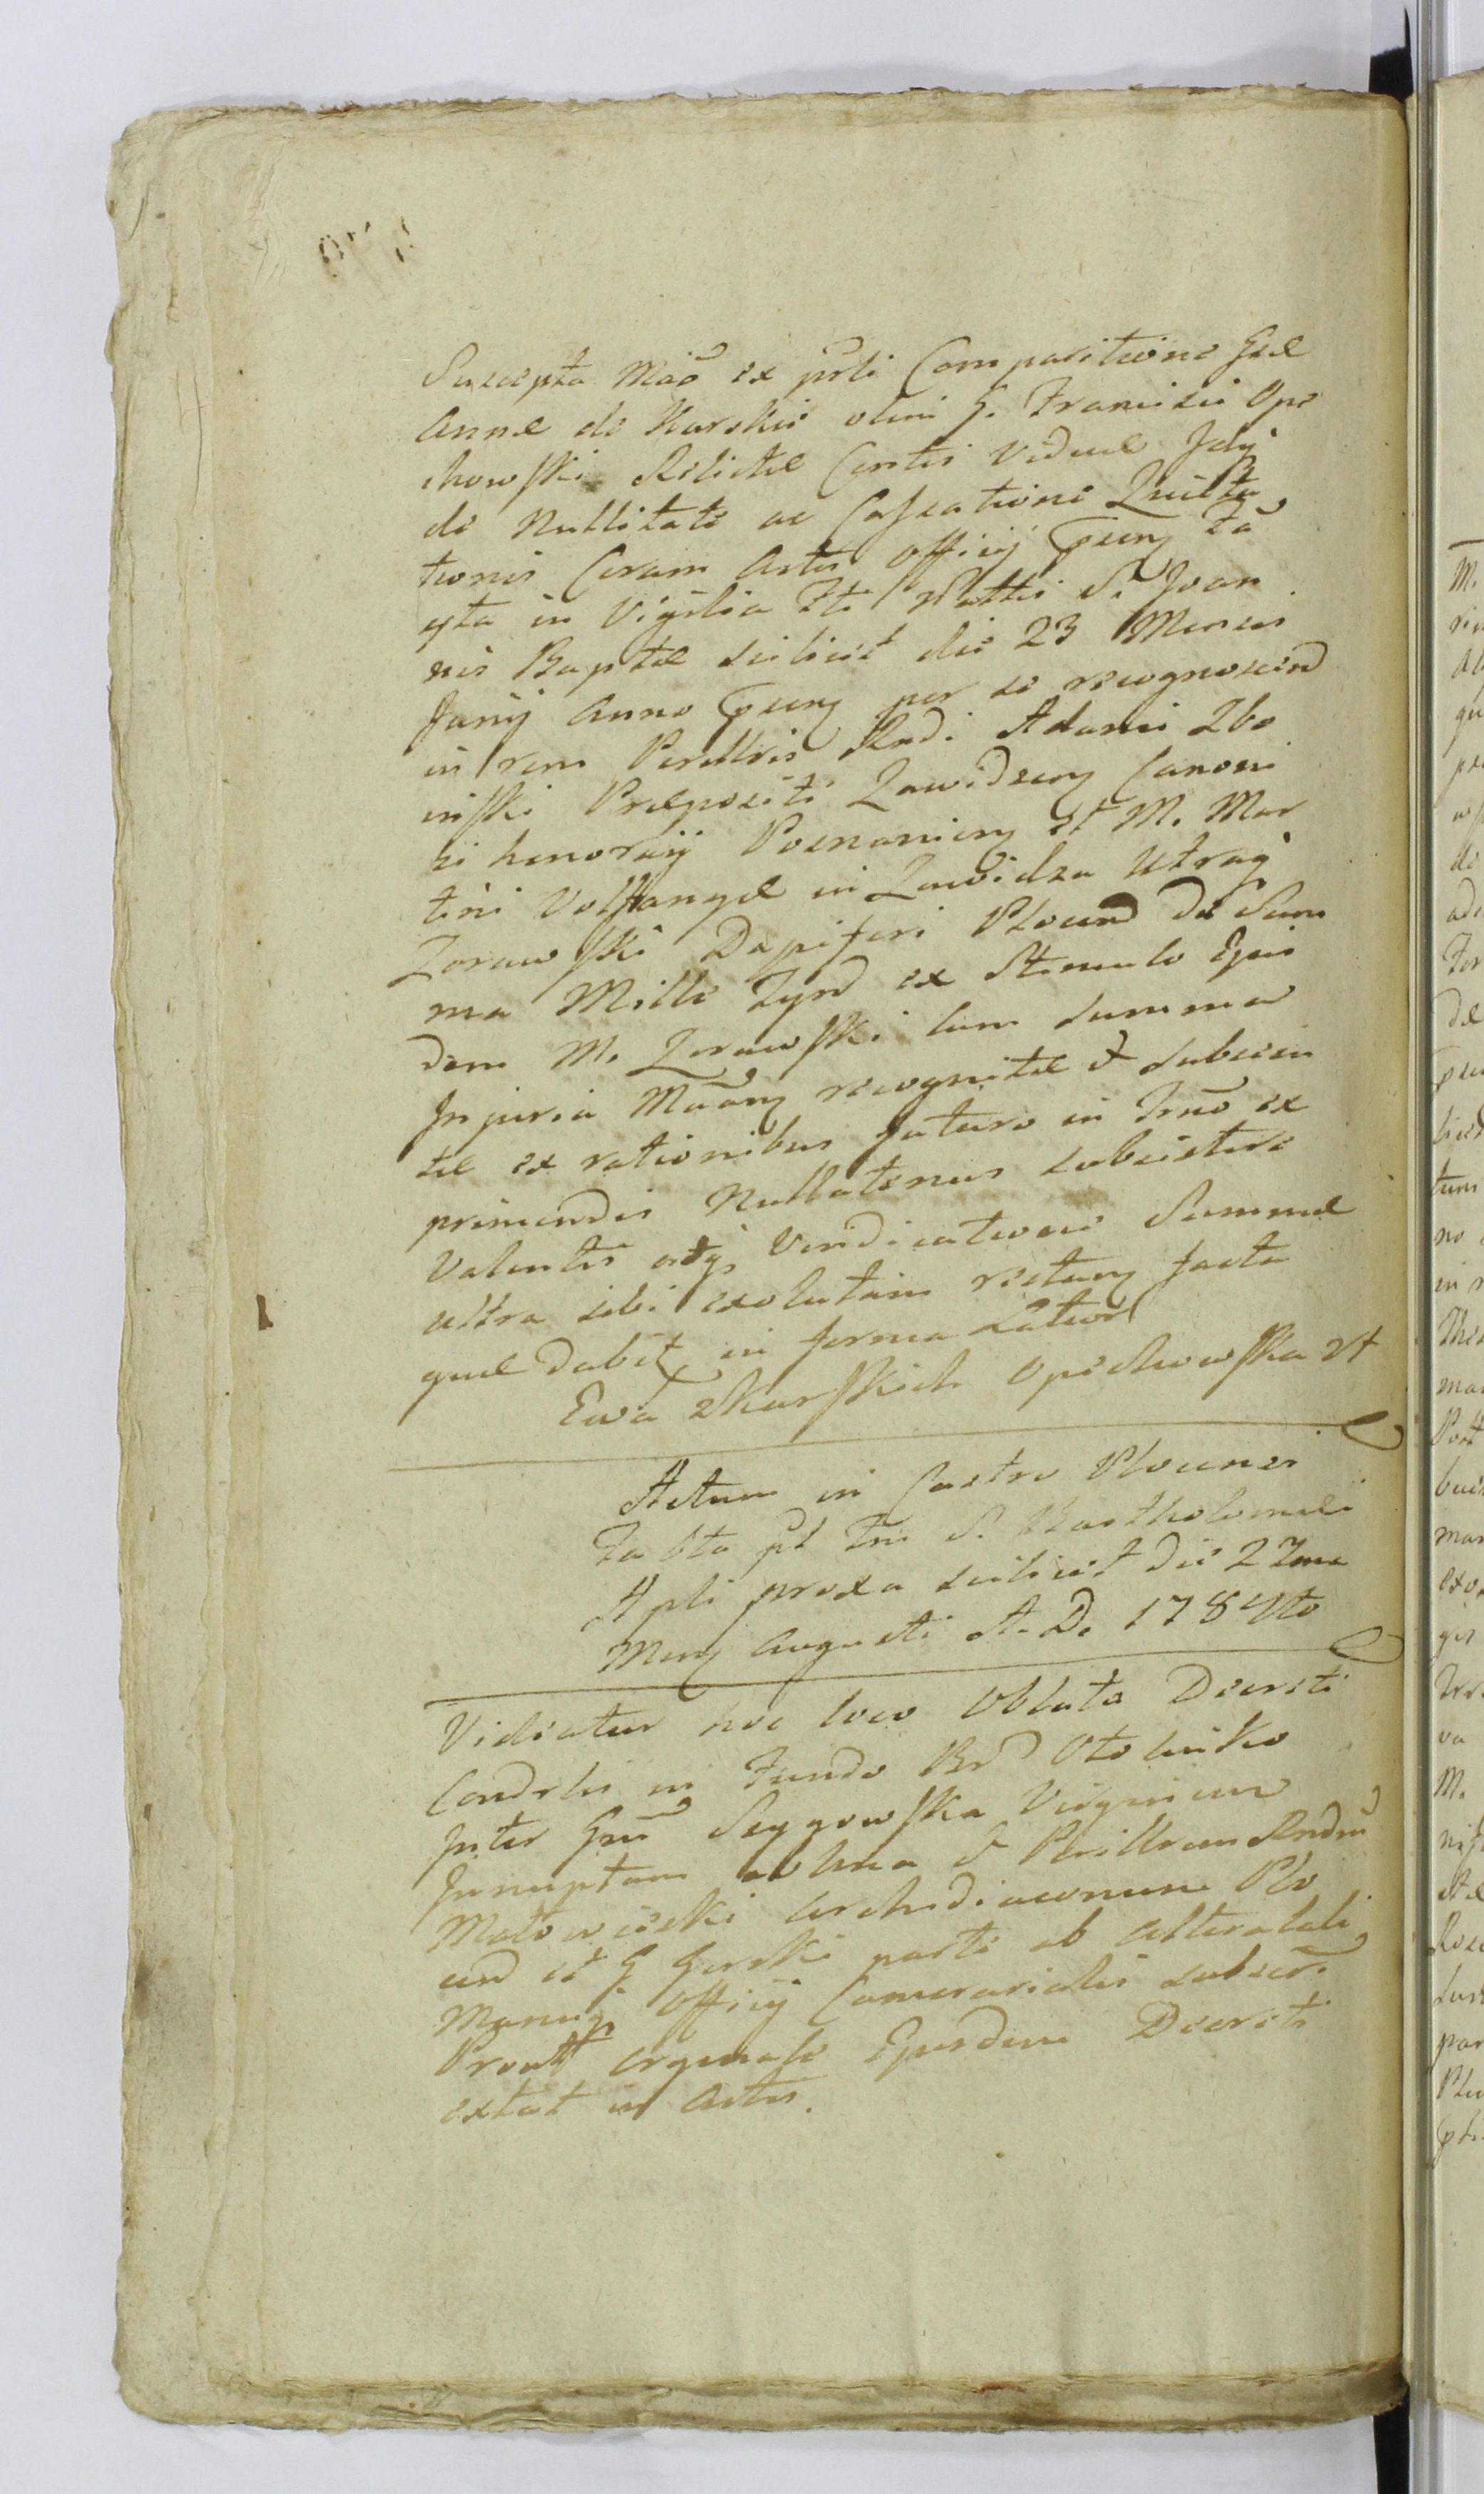 Suscepta Mão ex prti Comparitione Gsæ
Annæ de Kurskie olim G. Francisci Ope
chowski Relictæ Contis Viduæ Jdq
de Nullitate ac Cassatione Quieta
tionis Coram Actis Officij psens Fa
cta in Vigilia Fti Nattis S. Joan
nis Baptæ scilicet die 23 Mensis
Junij Anno psens per se recognoscend
in rem Perillris Rndi Adami Zbo
inski Præpositi Zawidzens Canoni
ci honorarij Posnaniens et M. Mar
tini Volffangæ in Zawidza Utraq
Zorawski Dapiferi Plocens de Sum
ma Mille Tynf ex Stimulo Ejus
dem M. Zorawski cum summa
Injuria Mãns recognitæ et subscri
tæ ex rationibus futuro in Trno ex
primendis Nullatenus subsistere
Valentis adq Vendicatione Summæ
ultra sibi exolutam restans facta
quæ dabit in forma Latiori
Ewa z Kurskich Opechowska et
Actum in Castro Plocensi
Sabbto pt Fm S. Bartholomæi
Apli proxa scilicet die 27ma
Mens Augusti A. D. 1784to
Videatur hoc loco Oblata Decreti
Condrlis in Fundo Bnd Otolinko
Inter Gsm Seggowska Virginem
Innuptam ab Una et Perillrem Rndm
Matowieski Archidiaconum Plo
cens et G Gurski parte ab altera latj
Manuq Officij Camerarialis subscri
Proutt orginale Ejusdem Decreti
extat in Actis.